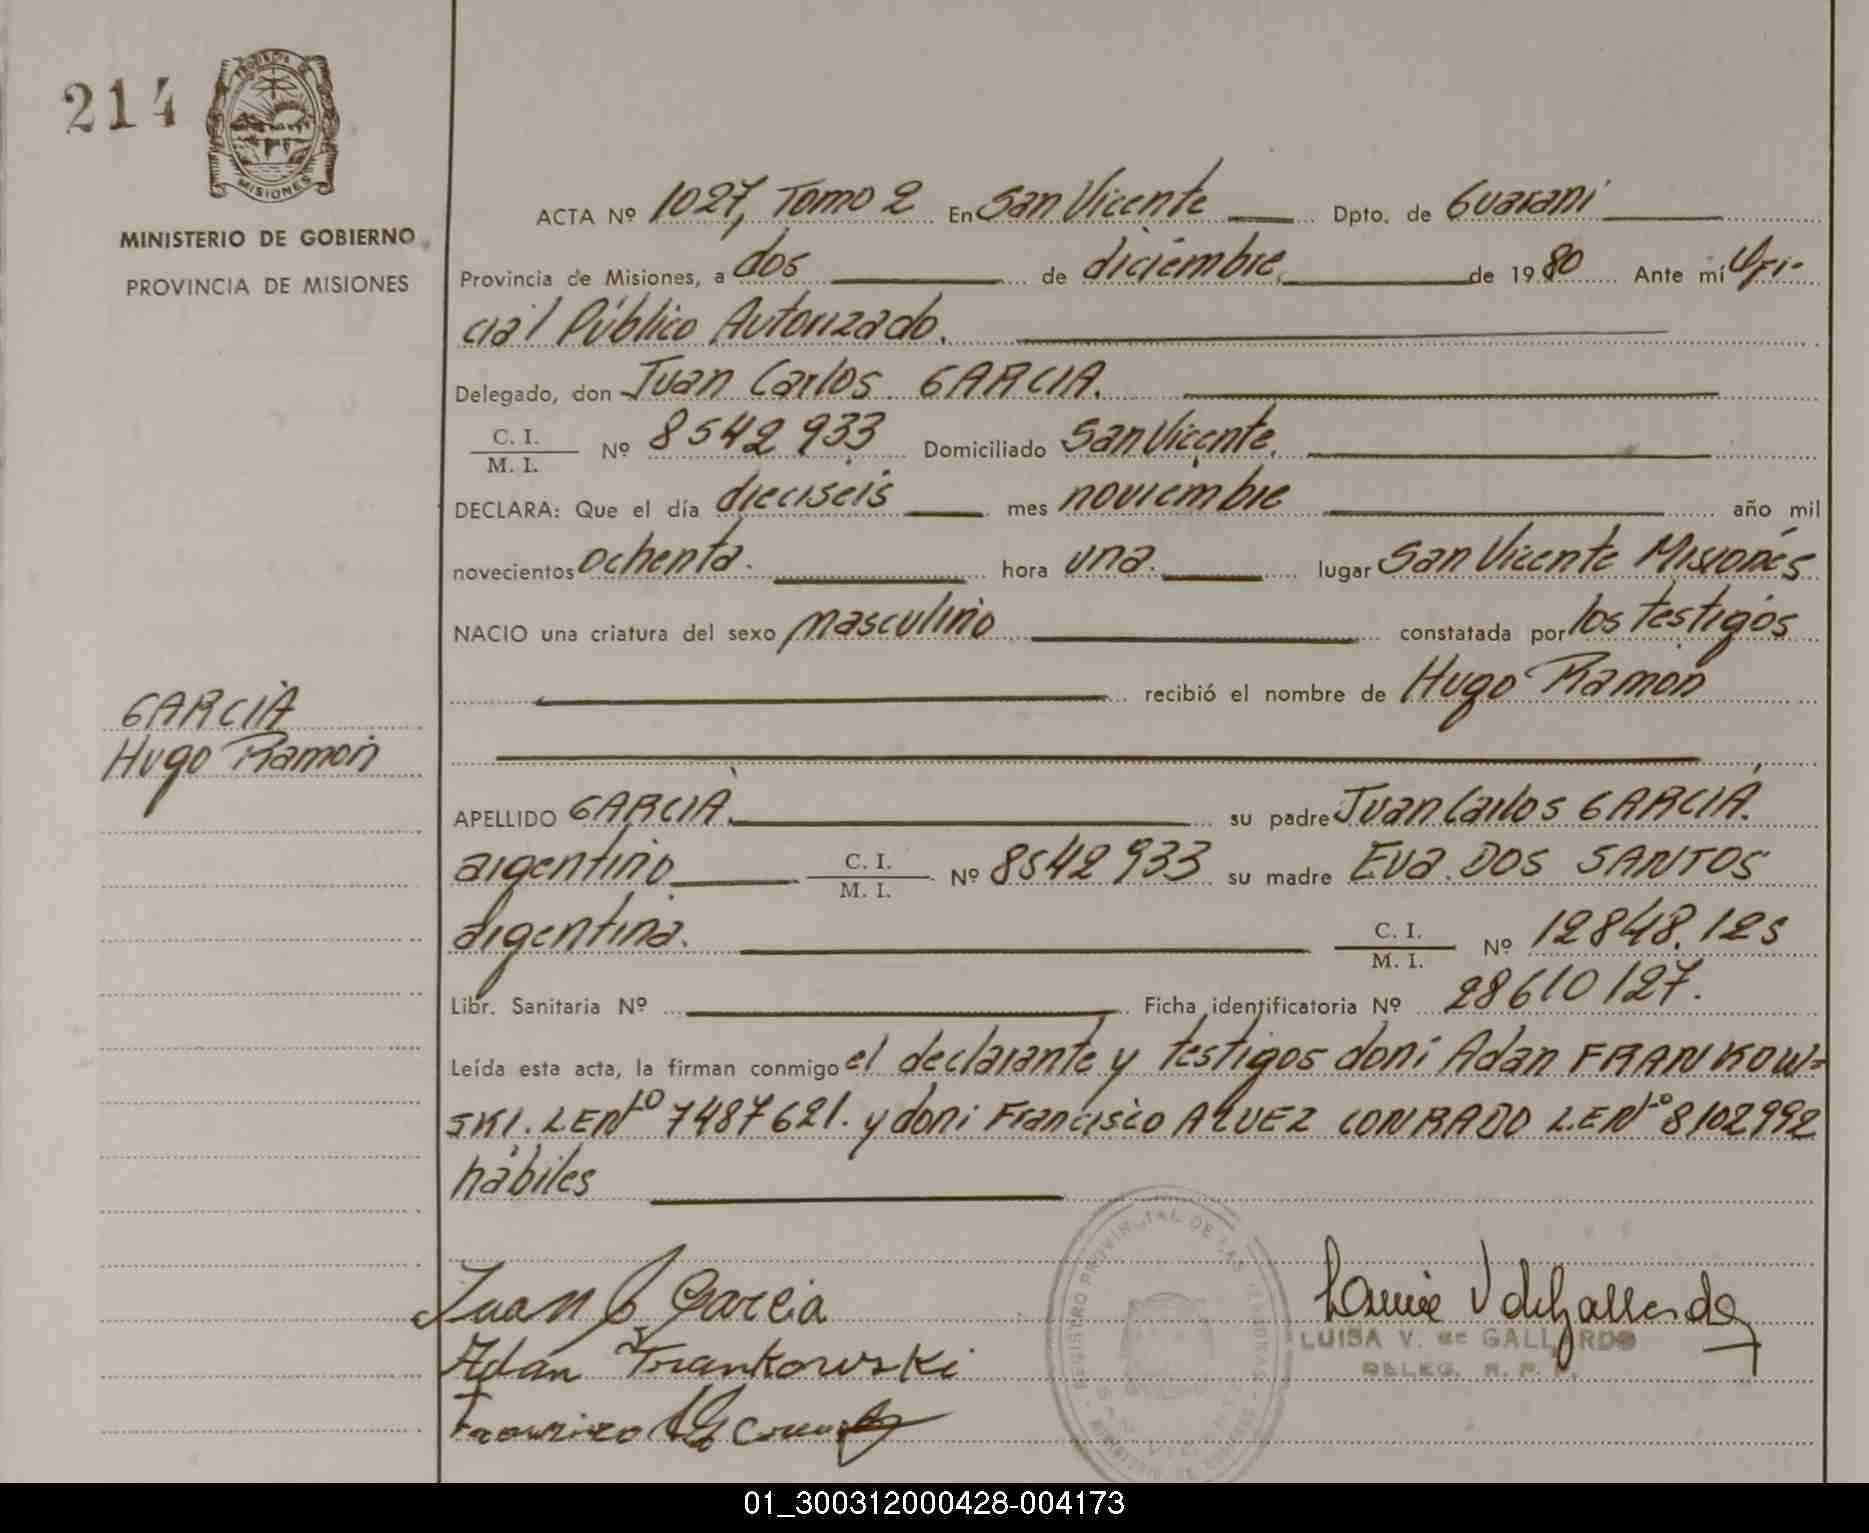 214
PROVINCIA DE
MISIONES
MINISTERIO DE GOBIERNO
PROVINCIA DE MISIONES
GARCIA
Hugo Ramón
ACTA Nº 1027, Tomo 2 En San Vicente Dpto. de Guaraní
Provincia de Misiones, a dos de diciembre, de 1980 Ante mí Ofi-
cial Público Autorizado.
Delegado, don Juan Carlos GARCIA.
C. I. / M. I. Nº 8542933 Domiciliado San Vicente.
DECLARA: Que el día dieciséis mes noviembre año mil
novecientos ochenta. hora una. lugar San Vicente Misiones
NACIO una criatura del sexo masculino constatada por los testigos
recibió el nombre de Hugo Ramón
APELLIDO GARCIA. su padre Juan Carlos GARCIA.
argentino C. I. / M. I. Nº 8542933 su madre Eva DOS SANTOS
argentina. C. I. / M. I. Nº 12848.125
Libr. Sanitaria Nº Ficha identificatoria Nº 28610127.
Leída esta acta, la firman conmigo el declarante y testigos don: Adan FRANKOW-
SKI. LENº 7487621. y don: Francisco ALVEZ CONRADO L.ENº 8102992
hábiles
Juan C Garcia
Adán Frankowski
LUISA V. de GALLARDO
DELEG. R. P. P.
REGISTRO PROVINCIAL DE LAS PERSONAS
MINISTERIO DE GOBIERNO
01_300312000428-004173